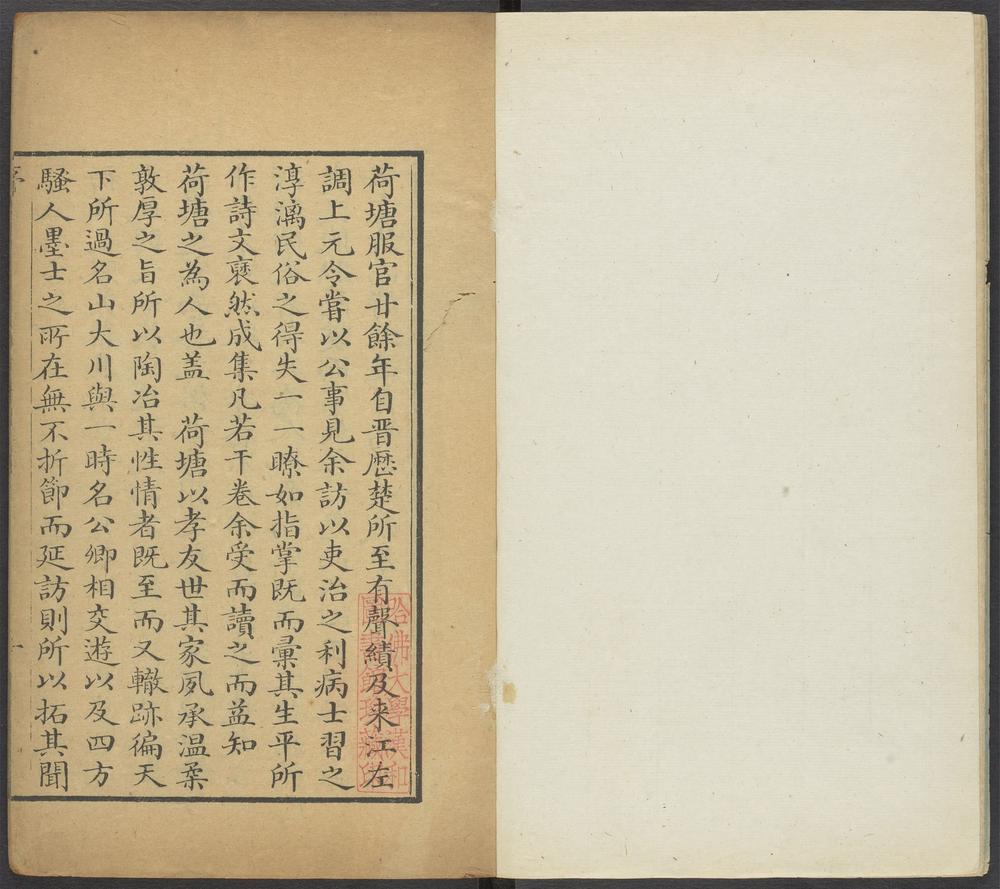 荷塘服官廿餘年自晋歷楚所至有聲績及来江左
調上元令嘗以公事見余訪以吏治之利病士習之
淳漓民俗之得失一一瞭如指掌既而彙其生平所
作詩文裒然成集凡若干卷余受而讀之而益知
荷塘之為人也盖 荷塘以孝友世其家夙承温柔
敦厚之旨所以陶冶其性情者既至而又轍跡徧天
下所過名山大川與一時名公卿相交遊以及四方
騷人墨士之所在無不折節而延訪則所以拓其聞
序 一
哈佛大學漢和
圖書館珍藏印